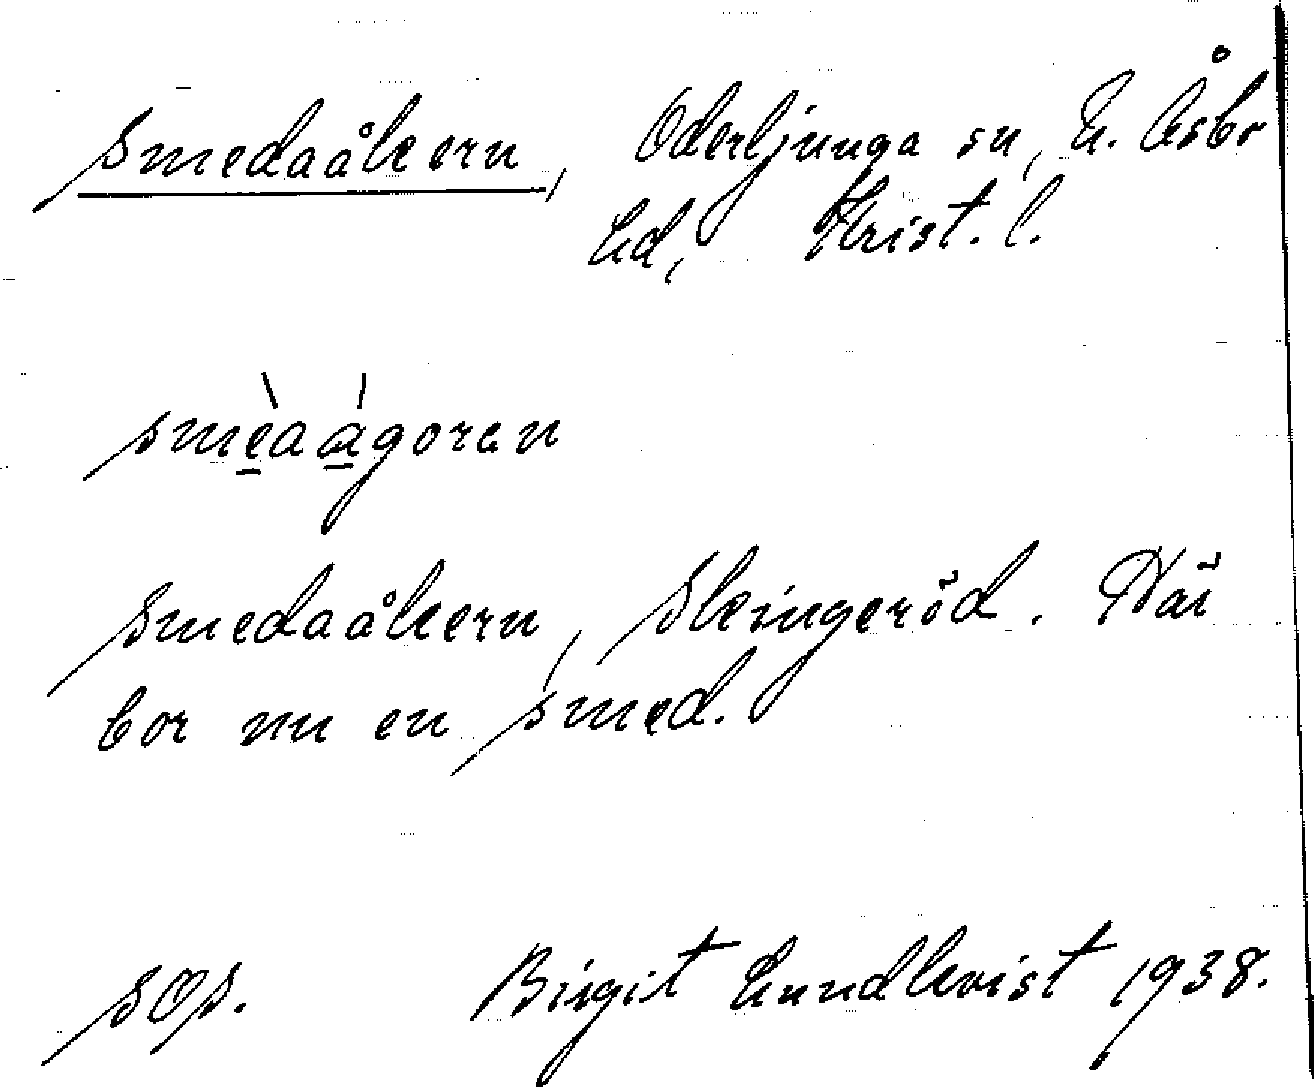 Smedaåkern, Oderljunga sn, N. Åsbo
hd, Krist. l.
smèaágoren
Smedaåkern, Skingeröd. Där
bor nu en smed.
SOS. Birgit Lundkvist 1938.